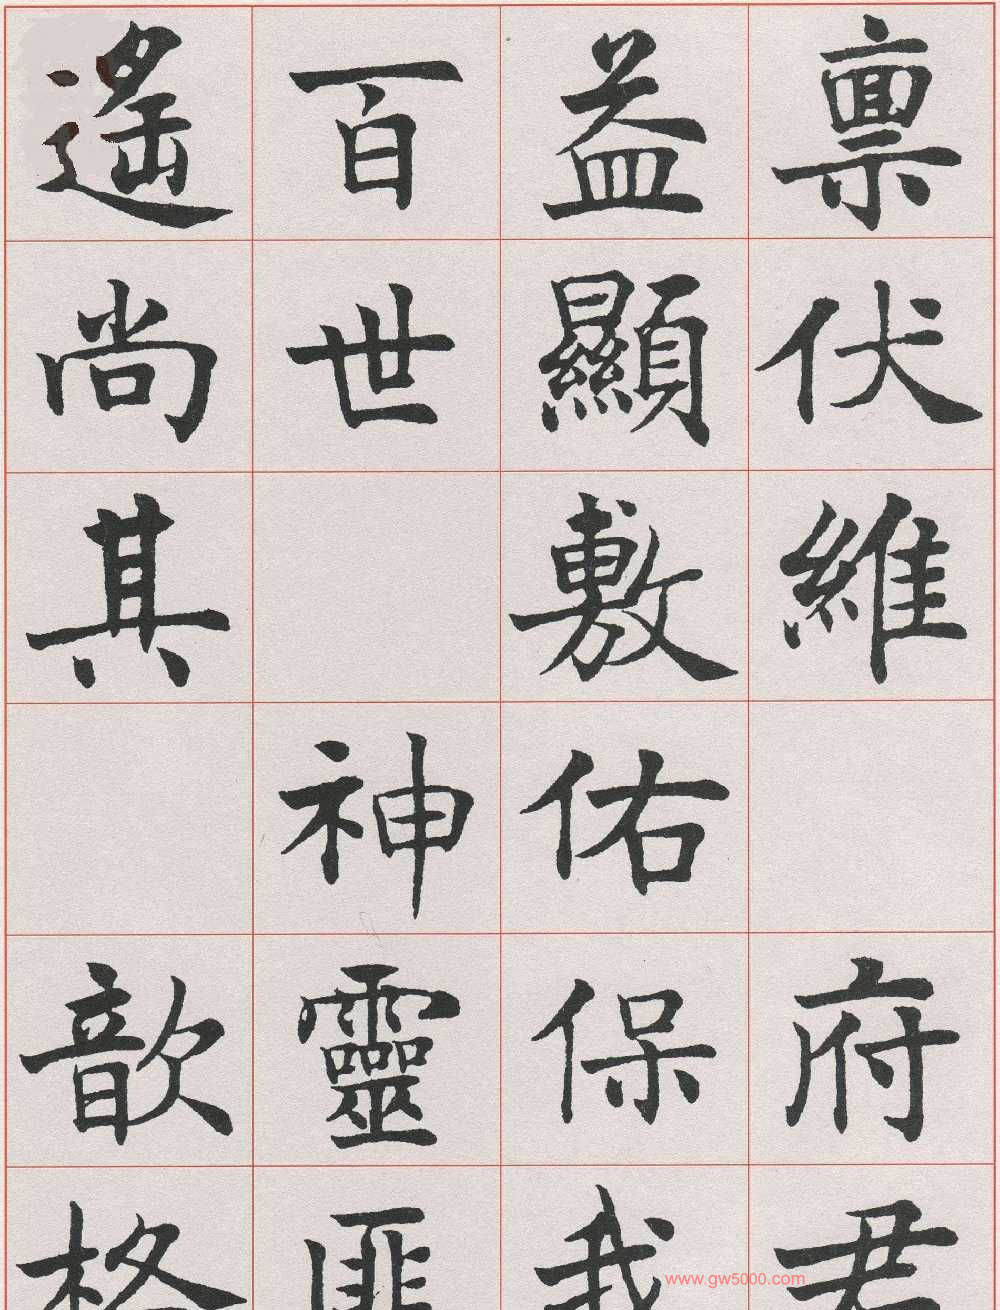 禀伏維府君
益顯敷佑保我
百世神靈匪
遙尚其歆格
www.gw5000.com